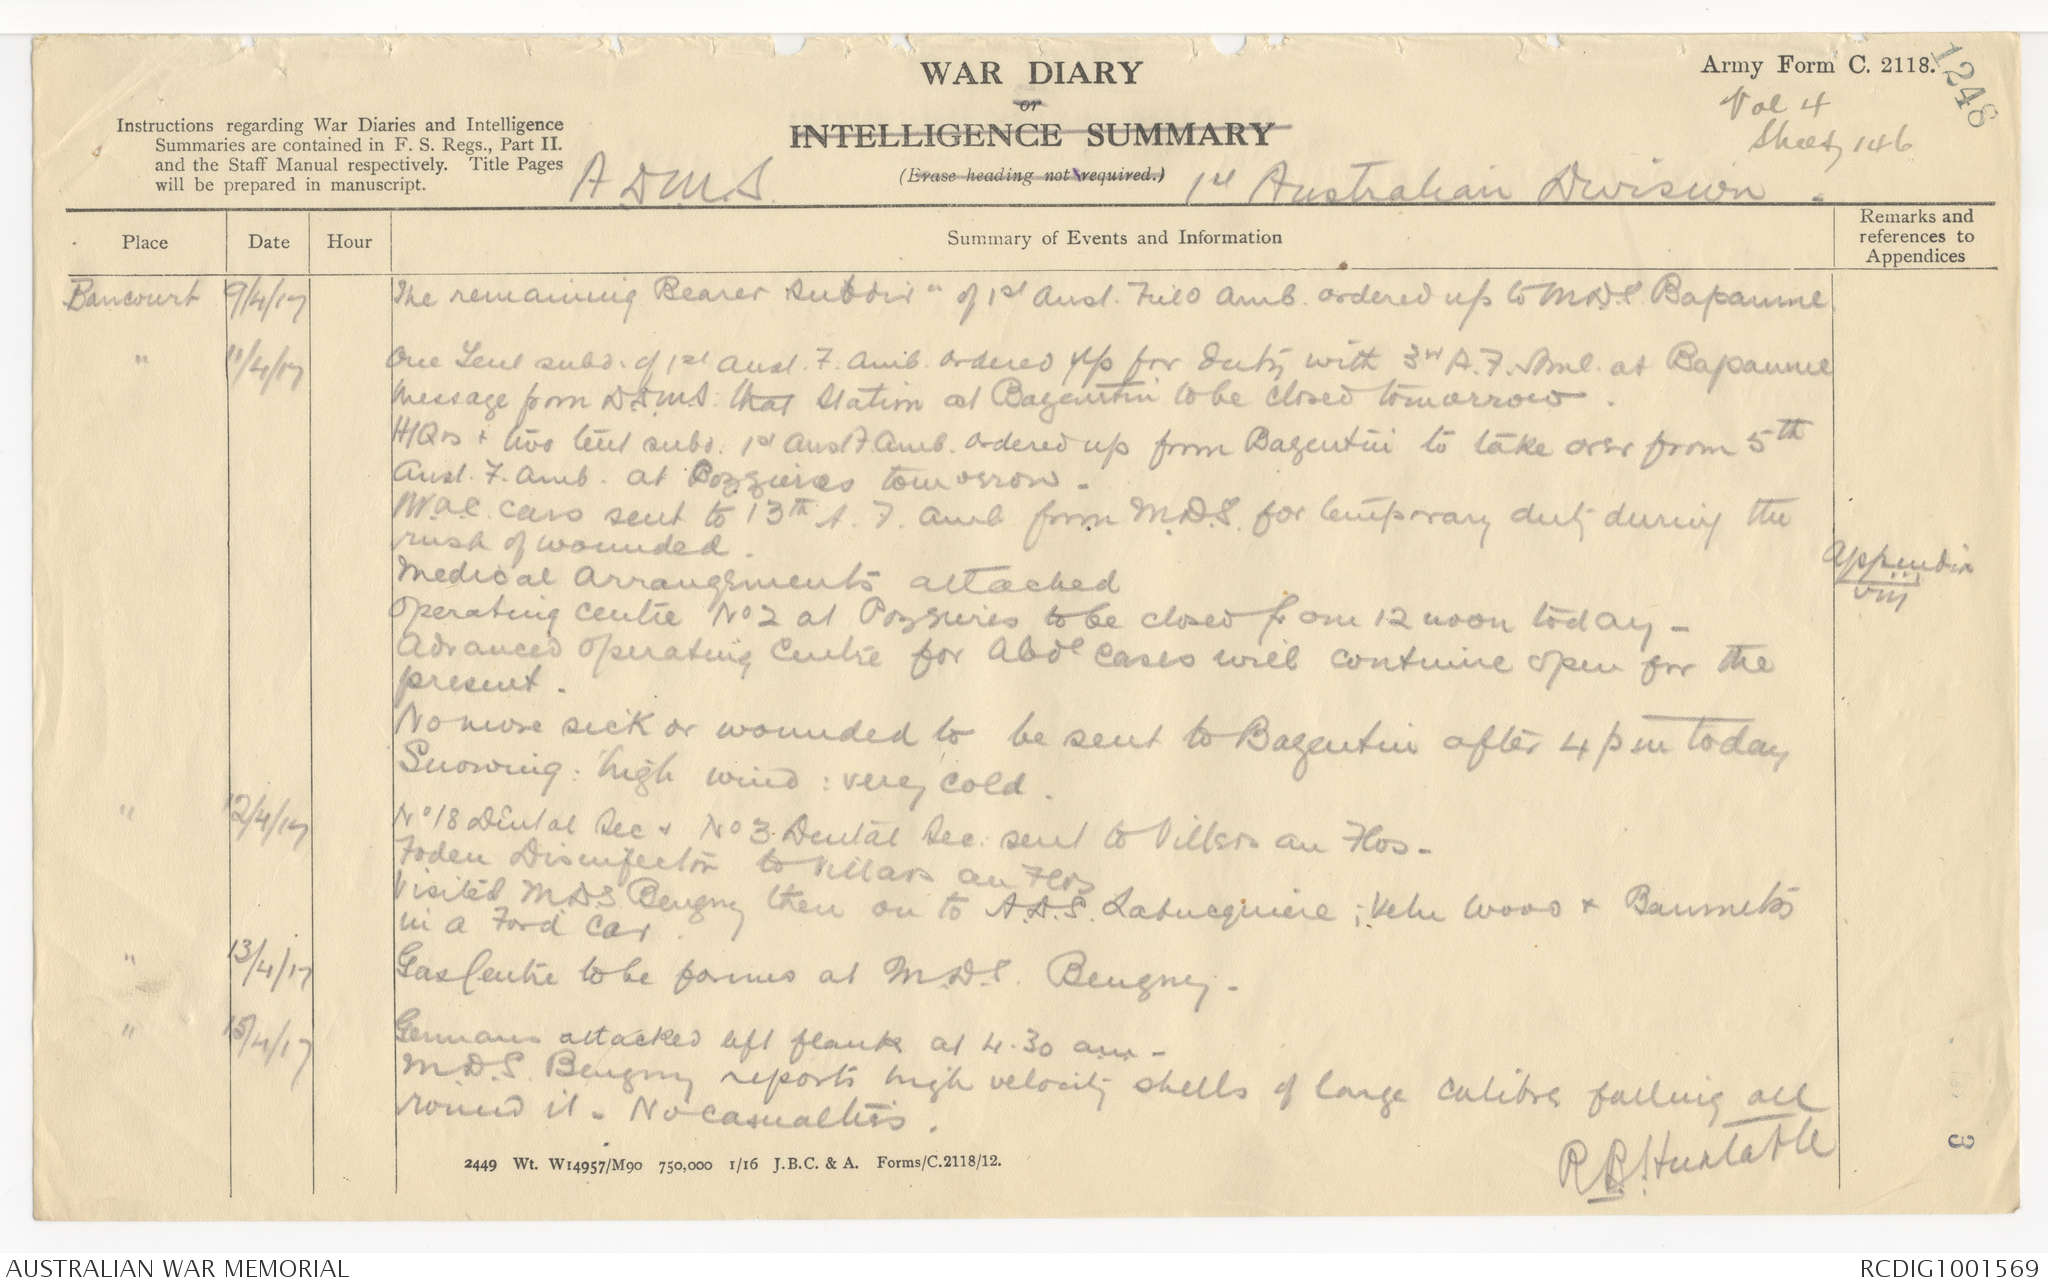 WAR DIARY
or
INTELLIGENCE SUMMARY
(Erase heading not required.)
Army Form C. 2118.
1248
Vol 4
Sheet 146
Instructions regarding War Diaries and Intelligence
Summaries are contained in F. S. Regs., Part II.
and the Staff Manual respectively. Title Pages
will be prepared in manuscript.
A.D.M.S. 1st Australian Division.
Place Date Hour Summary of Events and Information Remarks and references to Appendices
Bancourt 9/4/17 The remaining Bearer Subdivn of 1st Aust. Field Amb. ordered up to M.D.S. Bapaume.
" 11/4/17 One Tent subd. of 1st Aust. F. Amb. ordered up for duty with 3rd A.F. Amb. at Bapaume
Message from D.D.M.S. that Station at Bazentin to be closed tomorrow.
HQrs & two tent subd. 1st Aust F. Amb. ordered up from Bazentin to take over from 5th
Aust. F. Amb. at Pozzieres tomorrow.
cars sent to 13th A. F. Amb from M.D.S. for temporary duty during the
rush of wounded.
Medical Arrangements attached
Appendix
viii
Operating Centre No 2 at Pozzieres to be closed from 12 noon today -
Advanced Operating Centre for Abdl cases will continue open for the
present.
No more sick or wounded to be sent to Bazentin after 4 pm today
Snowing: high wind: very cold.
" 12/4/17 No 18 Dental Sec & No 3 Dental Sec. sent to Villers au Flos -
Foden Disinfector to Villars au Flos
Visited M.D.S. Beugny then on to A.D.S. Lebucquiere; Velu Wood &
in a Ford Car.
" 13/4/17 Gas Centre to be formed at M.D.S. Beugny -
" 15/4/17 Germans attacked left flank at 4.30 am -
M.D.S. Beugny reports high velocity shells of large calibre falling all
round it - No casualties.
R B Huxtable
3
2449 Wt. W14957/M90 750,000 1/16 J.B.C. & A. Forms/C.2118/12.
AUSTRALIAN WAR MEMORIAL
RCDIG1001569